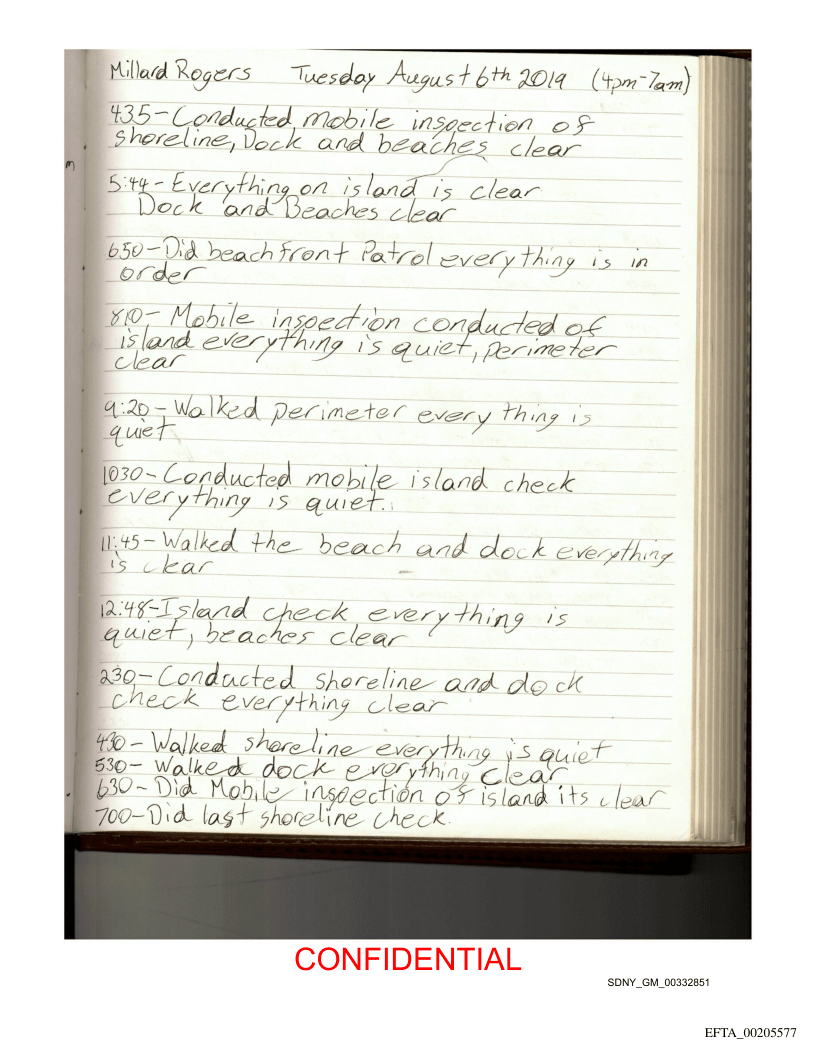 Millard Rogers Tuesday August 6th 2019 (4pm-7am)
435-Conducted mobile inspection of
shoreline, Dock and beaches clear
m
5:44-Everything on island is clear
Dock and Beaches clear
650-Did beachfront Patrol everything is in
order
810- Mobile inspection conducted of
island everything is quiet, perimeter
clear
9:20-Walked perimeter every thing is
quiet
1030-Conducted mobile island check
everything is quiet.
11:45-Walked the beach and dock everything
is clear
12:48-Island check everything is
quiet, beaches clear
230-Conducted shoreline and dock
check everything clear
430- Walked shoreline everything is quiet
530- Walked dock everything clear
630- Did Mobile inspection of island its clear
700-Did last shoreline check.
CONFIDENTIAL
SDNY_GM_00332851
EFTA_00205577